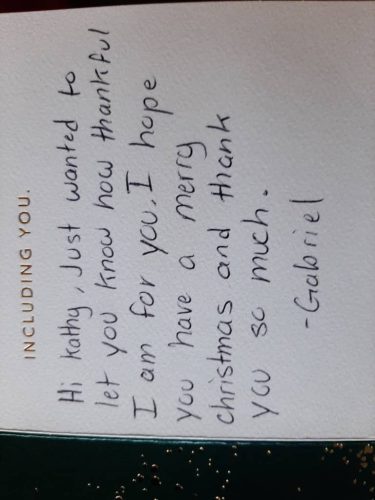 INCLUDING YOU.
Hi Kathy, Just wanted to
let you know how thankful
I am for you. I hope
you have a merry
christmas and thank
you so much.
-Gabriel